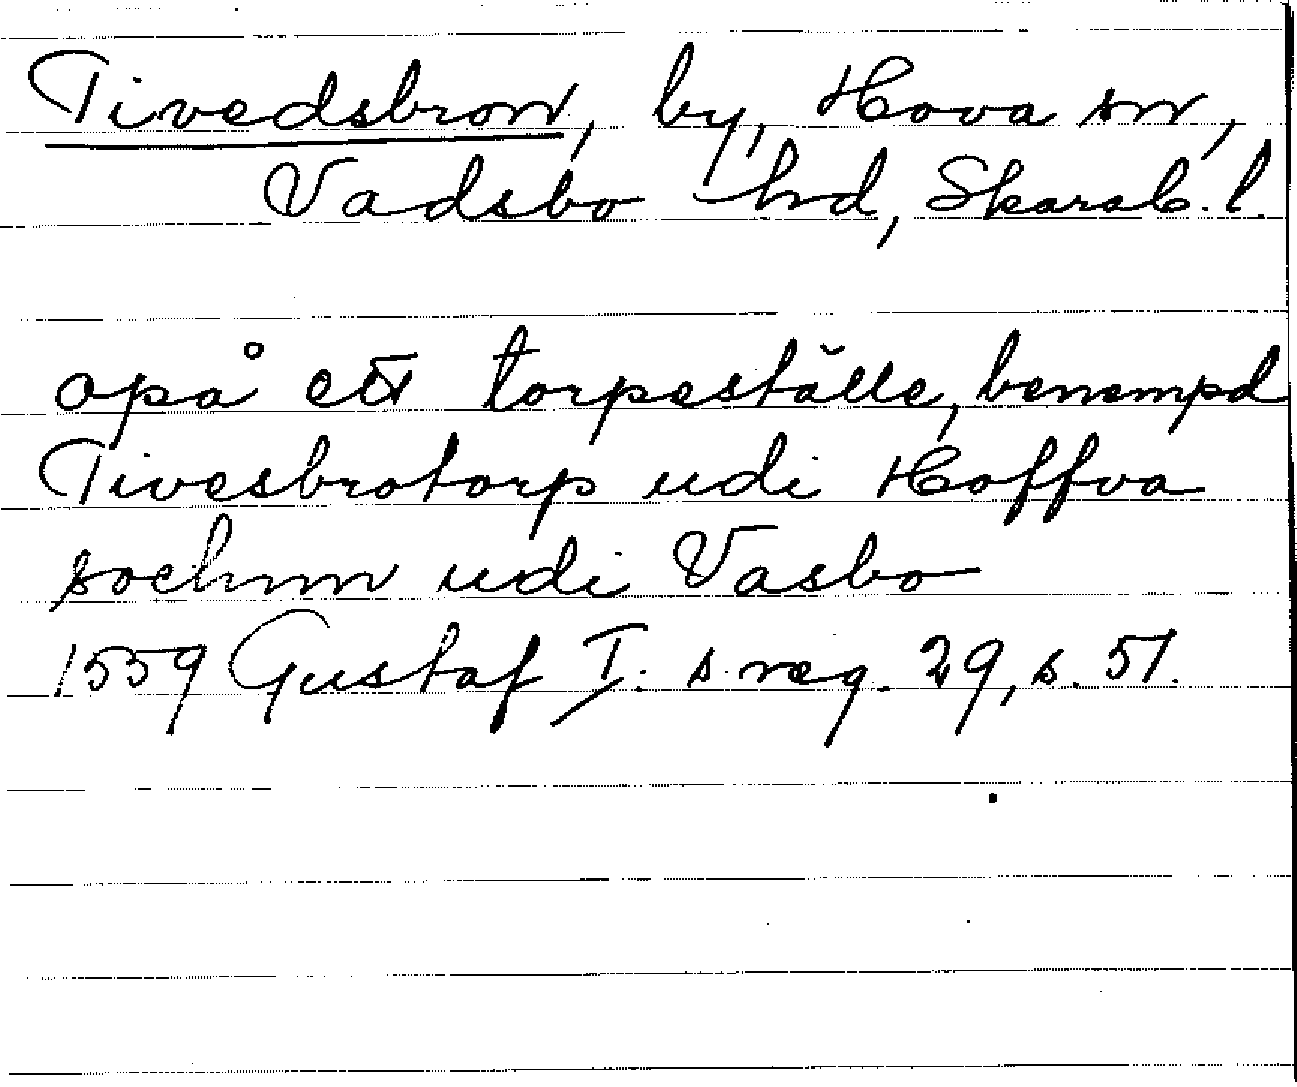 Tivedsbron, by, Hova sn,
Vadsbo hd, Skarab. l.
opå ett torpeställe, benempd
Tivesbrotorp udi Hoffva
sochnn udi Vasbo
1559 Gustaf I. s reg. 29, s. 51.